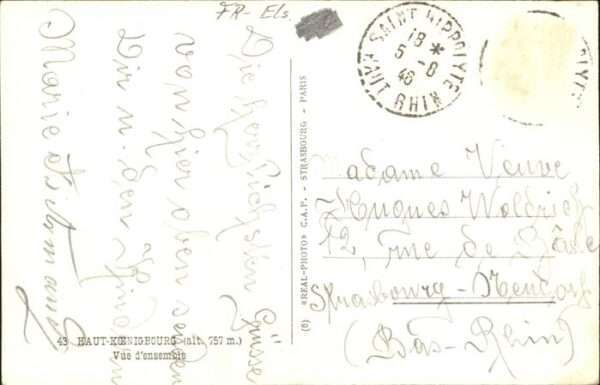 FR-Els.
Die herzlichsten Grüsse
von hier oben senden
Dir u. den Kindern
Marie
43 HAUT-KŒNIGBOURG (alt. 757 m.)
Vue d'ensemble
(6) «REAL-PHOTO» C.A.P. - STRASBOURG - PARIS
SAINT HIPPOLYTE
18 *
5 - 8
46
RHIN
Madame Veuve
Hugues
12, rue de Bâle
Strasbourg-Neudorf
(Bas-Rhin)